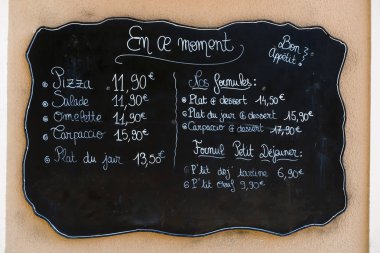 En ce moment
Bon
Appétit!
Pizza 11,90€
Salade 11,90€
Omelette 11,90€
Carpaccio 15,90€
Plat du jour 13,50€
Les formules:
Plat & dessert 14,50€
Plat du jour & dessert 15,90€
Carpaccio & dessert 17,90€
Formul Petit Déjeuner:
P'tit déj' tartine 6,90€
P'tit oeuf 9,90€